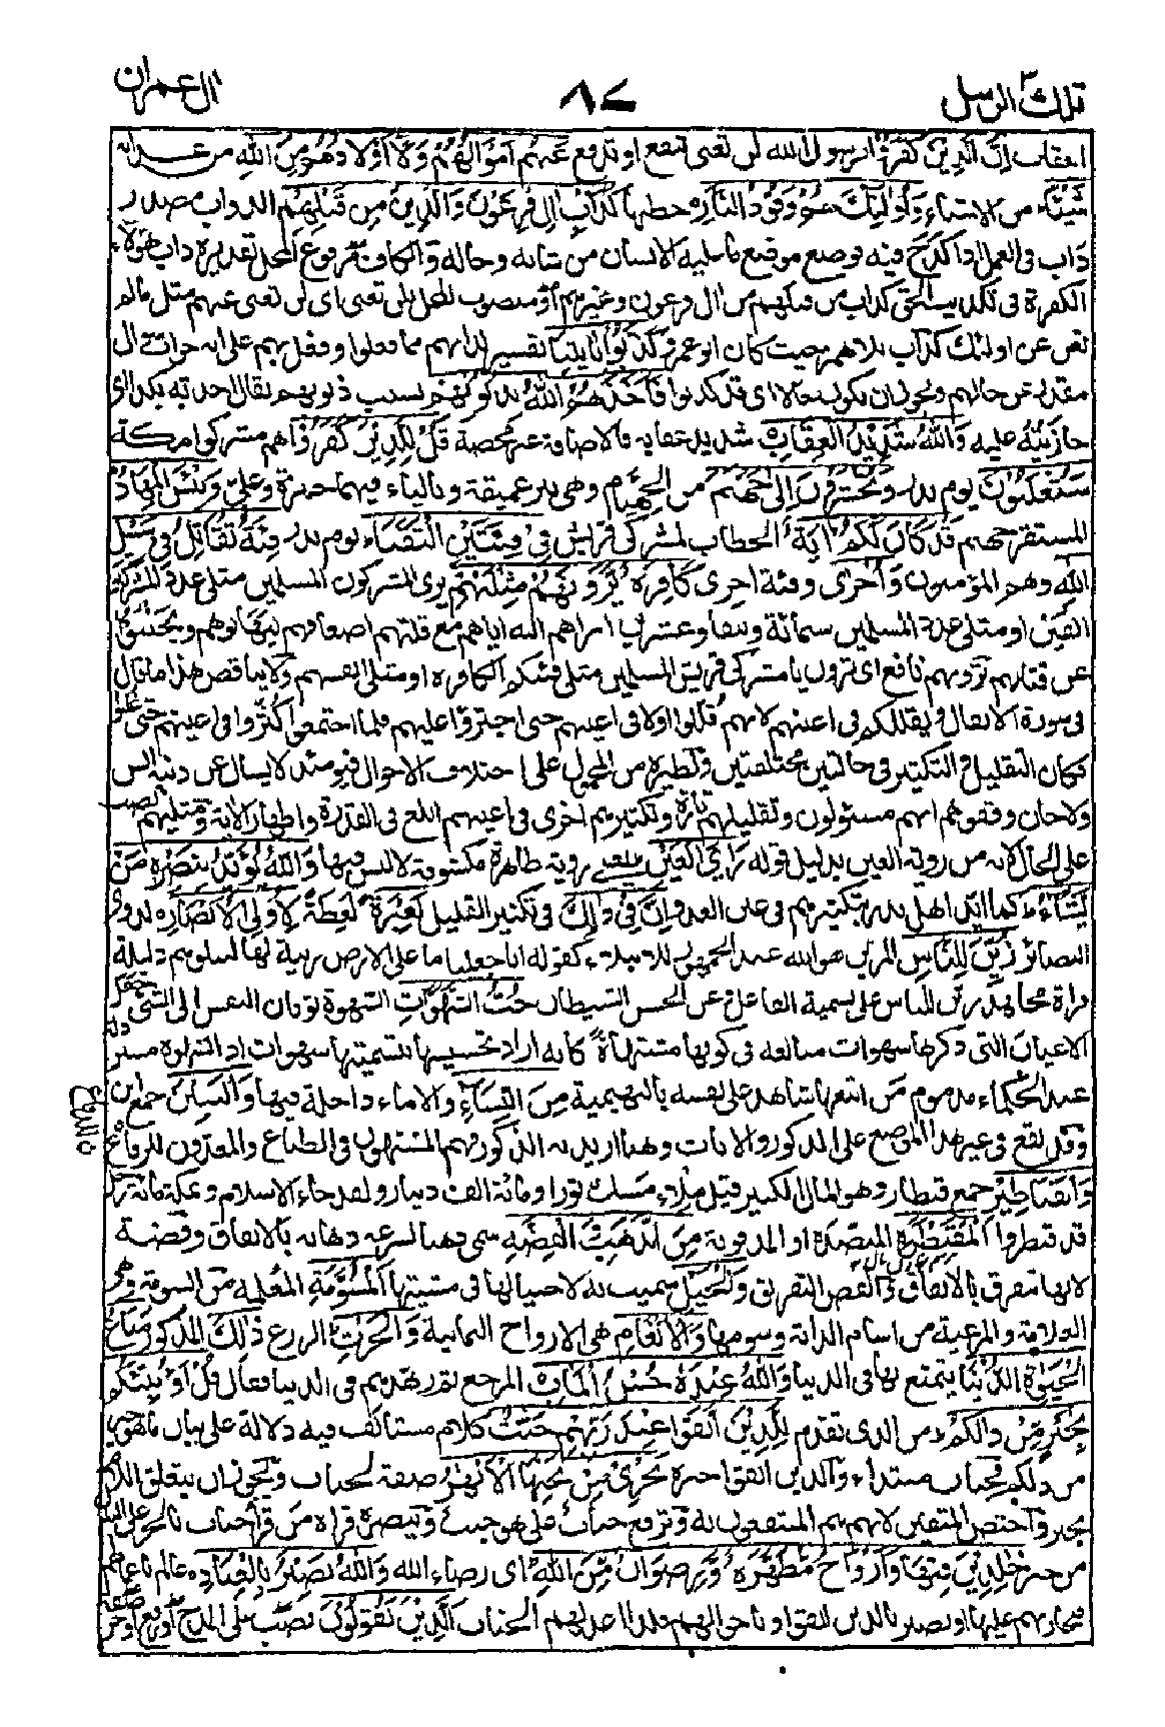 تلك الرسل ٣
٨٧
ال عمران
العقاب اِنَّ الَّذِيْنَ كَفَرُوْا برسول الله لن تُغْنِيَ تنفع او تدفع عَنْهُمْ اَمْوَالُهُمْ وَلَا اَوْلَادُهُمْ مِنَ اللهِ من عذابه
شَيْئًا من الاشياء وَاُولٰئِكَ هُمْ وَقُوْدُ النَّارِ حطبها كَدَاْبِ اٰلِ فِرْعَوْنَ وَالَّذِيْنَ مِنْ قَبْلِهِمْ الداب مصدر
داب فى العمل اذا كدح فيه فوضع موضع ما عليه الانسان من شانه وحاله والكاف مرفوع المحل تقديره داب هؤلاء
الكفرة فى تكذيب الحق كداب من قبلهم من ال فرعون وغيرهم او منصوب المحل بلن تغنى اى لن تغنى عنهم مثل مالم
تغن عن اولئك كداب بلا همز حيث كان ابو عمرو كَذَّبُوْا بِاٰيٰتِنَا تفسير لدابهم مما فعلوا وفعل بهم على انه جواب سؤال
مقدر عن حالهم ويجوز ان يكون حالا اى قد كذبوا فَاَخَذَهُمُ اللهُ بِذُنُوْبِهِمْ بسبب ذنوبهم يقال اخذته بكذا اى
جازيته عليه وَاللهُ شَدِيْدُ الْعِقَابِ شديد عقابه فالاضافة غير محضة قُلْ لِلَّذِيْنَ كَفَرُوْا هم مشركوا مكة
سَتُغْلَبُوْنَ يوم بدر وَتُحْشَرُوْنَ اِلٰى جَهَنَّمَ من الجهنام وهى بئر عميقة وبالياء فيهما حمزة وعلى وَبِئْسَ الْمِهَادُ
المستقر جهنم قَدْ كَانَ لَكُمْ اٰيَةٌ الخطاب لمشركى قريش فِيْ فِئَتَيْنِ الْتَقَتَا يوم بدر فِئَةٌ تُقَاتِلُ فِيْ سَبِيْلِ
اللهِ وهم المؤمنون وَاُخْرٰى وفئة اخرى كَافِرَةٌ يَرَوْنَهُمْ مِثْلَيْهِمْ يرى المشركون المسلمين مثلى عدد المشركين
الفين او مثلى عدد المسلمين ستمائة ونيفا وعشرين اراهم الله اياهم مع قلتهم اضعافهم ليهابوهم ويجبنوا
عن قتالهم ترونهم نافع اى ترون يا مشركى قريش المسلمين مثلى فئتكم الكافرة او مثلى انفسهم ولا يناقض هذا ما قال
فى سورة الانفال ويقللكم فى اعينهم لانهم قللوا اولا فى اعينهم حتى اجترؤا عليهم فلما اجتمعوا كثروا فى اعينهم حتى غلبوا
فكان التقليل والتكثير فى حالتين مختلفتين ونظيره من المحمول على اختلاف الاحوال فيومئذ لا يسال عن ذنبه انس
ولا جان وقفوهم انهم مسئولون وتقليلهم تارة وتكثيرهم اخرى فى اعينهم ابلغ فى القدرة واظهار الاية ومثليهم نصب
على الحال لانه من رؤية العين بدليل قوله رَاْيَ الْعَيْنِ يعنى رؤية ظاهرة مكشوفة لا لبس فيها وَاللهُ يُؤَيِّدُ بِنَصْرِهٖ مَنْ
يَشَاءُ كما ايد اهل بدر بتكثيرهم فى عين العدو اِنَّ فِيْ ذٰلِكَ فى تكثير القليل لَعِبْرَةً لعظة لِاُولِي الْاَبْصَارِ لذوى
البصائر زُيِّنَ لِلنَّاسِ المزين هو الله عند الجمهور للابتلاء كقوله انا جعلنا ما على الارض زينة لها لنبلوهم دليله
قراءة مجاهد زين للناس على تسمية الفاعل وعن الحسن الشيطان حُبُّ الشَّهَوٰتِ الشهوة توقان النفس الى الشئ جعل
الاعيان التى ذكرها شهوات مبالغة فى كونها مشتهاة كانه اراد تخسيسها بتسميتها شهوات اذ الشهوة مسترذلة
عند الحكماء مذموم من اتبعها شاهد على نفسه بالبهيمية مِنَ النِّسَاءِ والاماء داخلة فيها وَالْبَنِيْنَ جمع ابن
وقد يقع فى غير هذا الموضع على الذكور والاناث وهنا اريد به الذكور فهم المشتهون فى الطباع والمعدون للدفاع
وَالْقَنَاطِيْرِ جمع قنطار وهو المال الكثير قيل ملاء مسك ثور او مائة الف دينار ولقد جاء الاسلام وبمكة مائة رجل
قد قنطروا الْمُقَنْطَرَةِ المنضدة او المدفونة مِنَ الذَّهَبِ وَالْفِضَّةِ سمى ذهبا لسرعة ذهابه بالانفاق وفضة
لانها تتفرق بالانفاق والفض التفريق وَالْخَيْلِ سميت به لاختيالها فى مشيتها الْمُسَوَّمَةِ المعلمة من السومة وهى
العلامة او المرعية من اسام الدابة وسومها وَالْاَنْعَامِ هى الازواج الثمانية وَالْحَرْثِ الزرع ذٰلِكَ المذكور مَتَاعُ
الْحَيٰوةِ الدُّنْيَا يتمتع بها فى الدنيا وَاللهُ عِنْدَهٗ حُسْنُ الْمَاٰبِ المرجع ثم زهدهم فى الدنيا فقال قُلْ اَؤُنَبِّئُكُمْ
بِخَيْرٍ مِنْ ذٰلِكُمْ من الذى تقدم لِلَّذِيْنَ اتَّقَوْا عِنْدَ رَبِّهِمْ جَنّٰتٌ كلام مستانف فيه دلالة على بيان ما هو خير
من ذلكم فجنات مبتداء وللذين اتقوا خبره تَجْرِيْ مِنْ تَحْتِهَا الْاَنْهٰرُ صفة لجنات ويجوز ان يتعلق اللام
بخير واختص المتقين لانهم هم المنتفعون به وترفع جنات على هو جنات وتنصره قراءة من قرا جنات بالجر على البدل
من خير خٰلِدِيْنَ فِيْهَا وَاَزْوَاجٌ مُطَهَّرَةٌ وَرِضْوَانٌ مِنَ اللهِ اى رضاء الله وَاللهُ بَصِيْرٌ بِالْعِبَادِ عالم باعمالهم
فيجازيهم عليها او بصير بالذين اتقوا وباحوالهم فلذا اعد لهم الجنات اَلَّذِيْنَ يَقُوْلُوْنَ نصب على المدح او رفع او جر